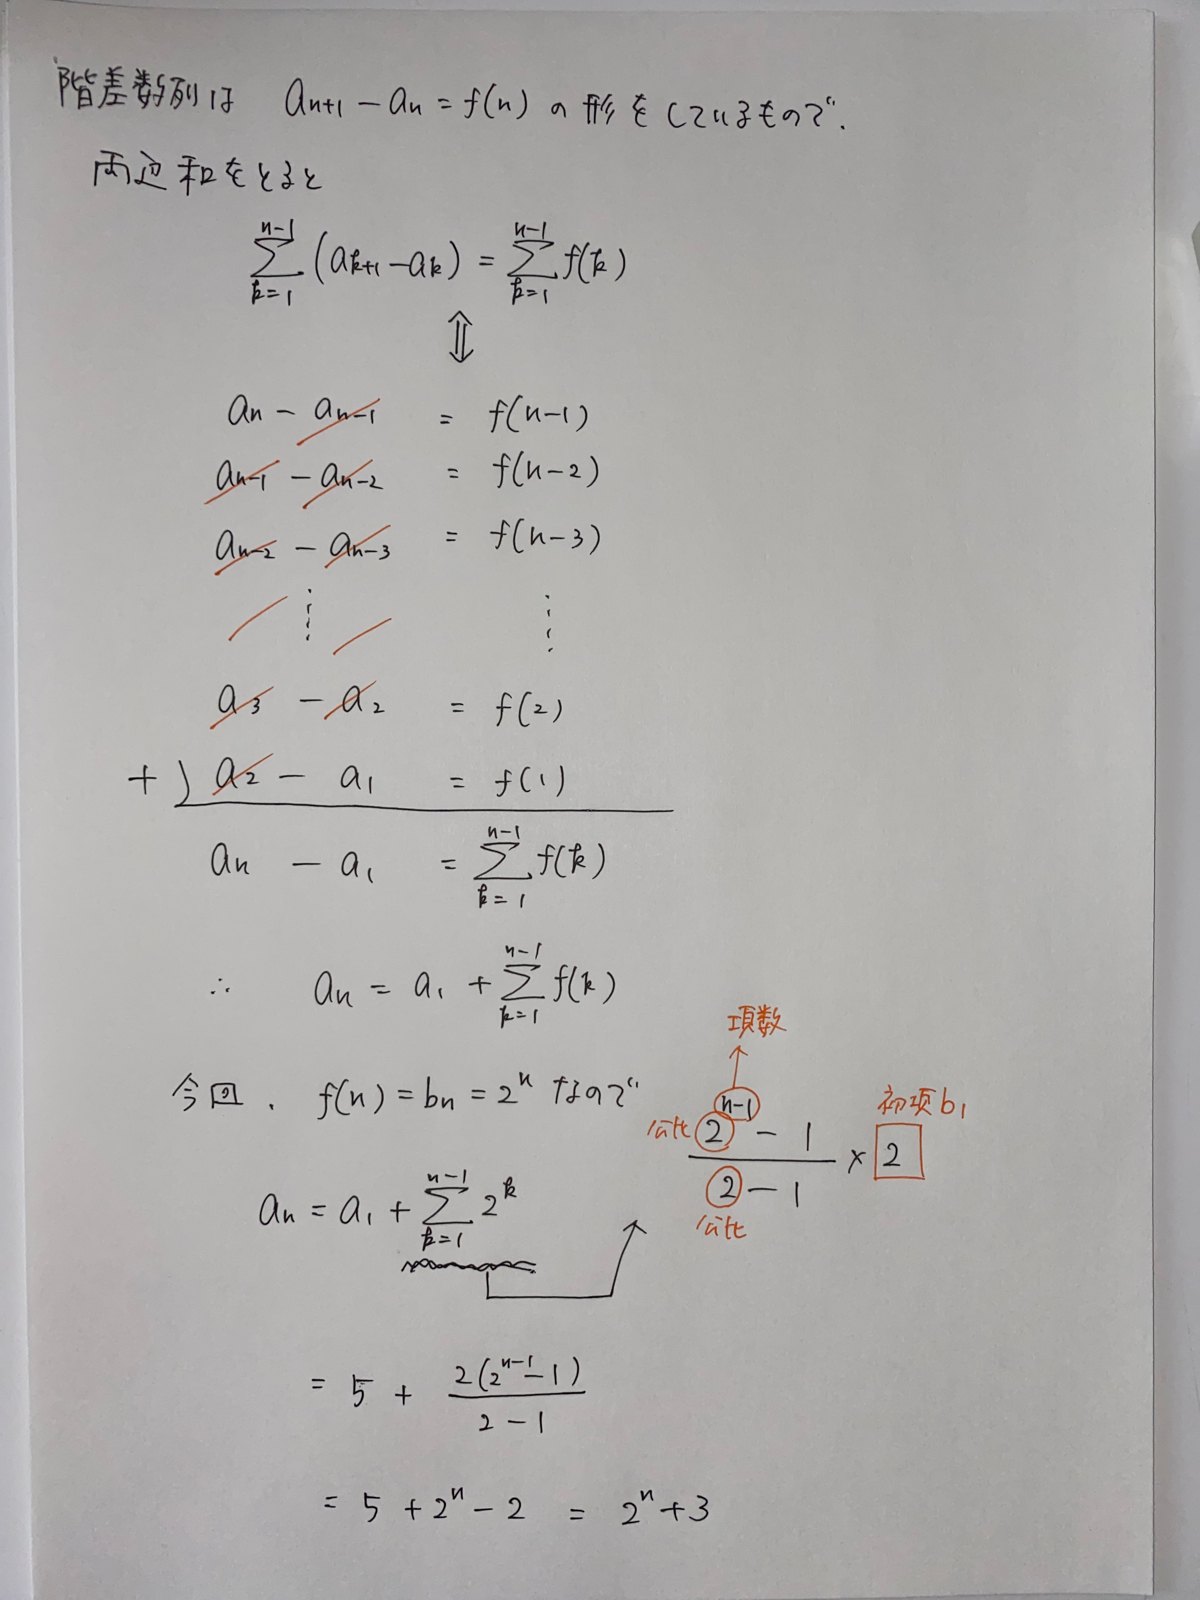 階差数列は aₙ₊₁ − aₙ = f(n) の形をしているもので.
両辺和をとると
∑_{k=1}^{n-1} (aₖ₊₁ − aₖ) = ∑_{k=1}^{n-1} f(k)
⇕
aₙ − aₙ₋₁ = f(n−1)
aₙ₋₁ − aₙ₋₂ = f(n−2)
aₙ₋₂ − aₙ₋₃ = f(n−3)
⋮ ⋮
a₃ − a₂ = f(2)
+) a₂ − a₁ = f(1)
aₙ − a₁ = ∑_{k=1}^{n-1} f(k)
∴ aₙ = a₁ + ∑_{k=1}^{n-1} f(k)
今回. f(n) = bₙ = 2ⁿ なので
aₙ = a₁ + ∑_{k=1}^{n-1} 2ᵏ
項数
公比 (2^{n-1} − 1)/(2 − 1) × 2 初項 b₁
公比
= 5 + 2(2^{n-1} − 1)/(2 − 1)
= 5 + 2ⁿ − 2 = 2ⁿ + 3